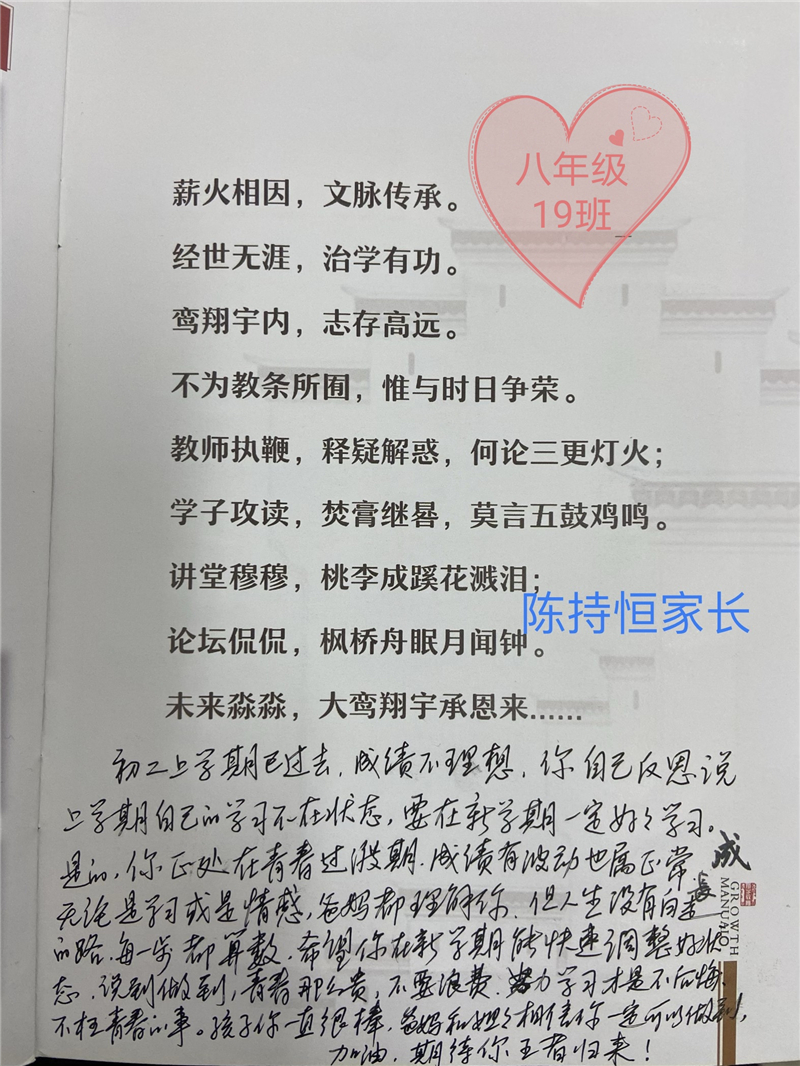 八年级
19班
薪火相因，文脉传承。
经世无涯，治学有功。
鸾翔宇内，志存高远。
不为教条所囿，惟与时日争荣。
教师执鞭，释疑解惑，何论三更灯火；
学子攻读，焚膏继晷，莫言五鼓鸡鸣。
讲堂穆穆，桃李成蹊花溅泪；
陈持恒家长
论坛侃侃，枫桥舟眠月闻钟。
未来淼淼，大鸾翔宇承恩来……
初二上学期已过去，成绩不理想，你自己反思说
上学期自己的学习不在状态，要在新学期一定好好学习。
是的，你正处在青春过渡期，成绩有波动也属正常
无论是学习或是情感，爸妈都理解你，但人生没有白走
的路，每一步都算数，希望你在新学期能快速调整好状
态，说到做到，青春那么贵，不要浪费，努力学习才是不后悔、
不枉青春的事。孩子你一直很棒，爸妈和姐姐相信你一定可以做到，
加油，期待你王者归来！
成长
GROWTH
MANUAL